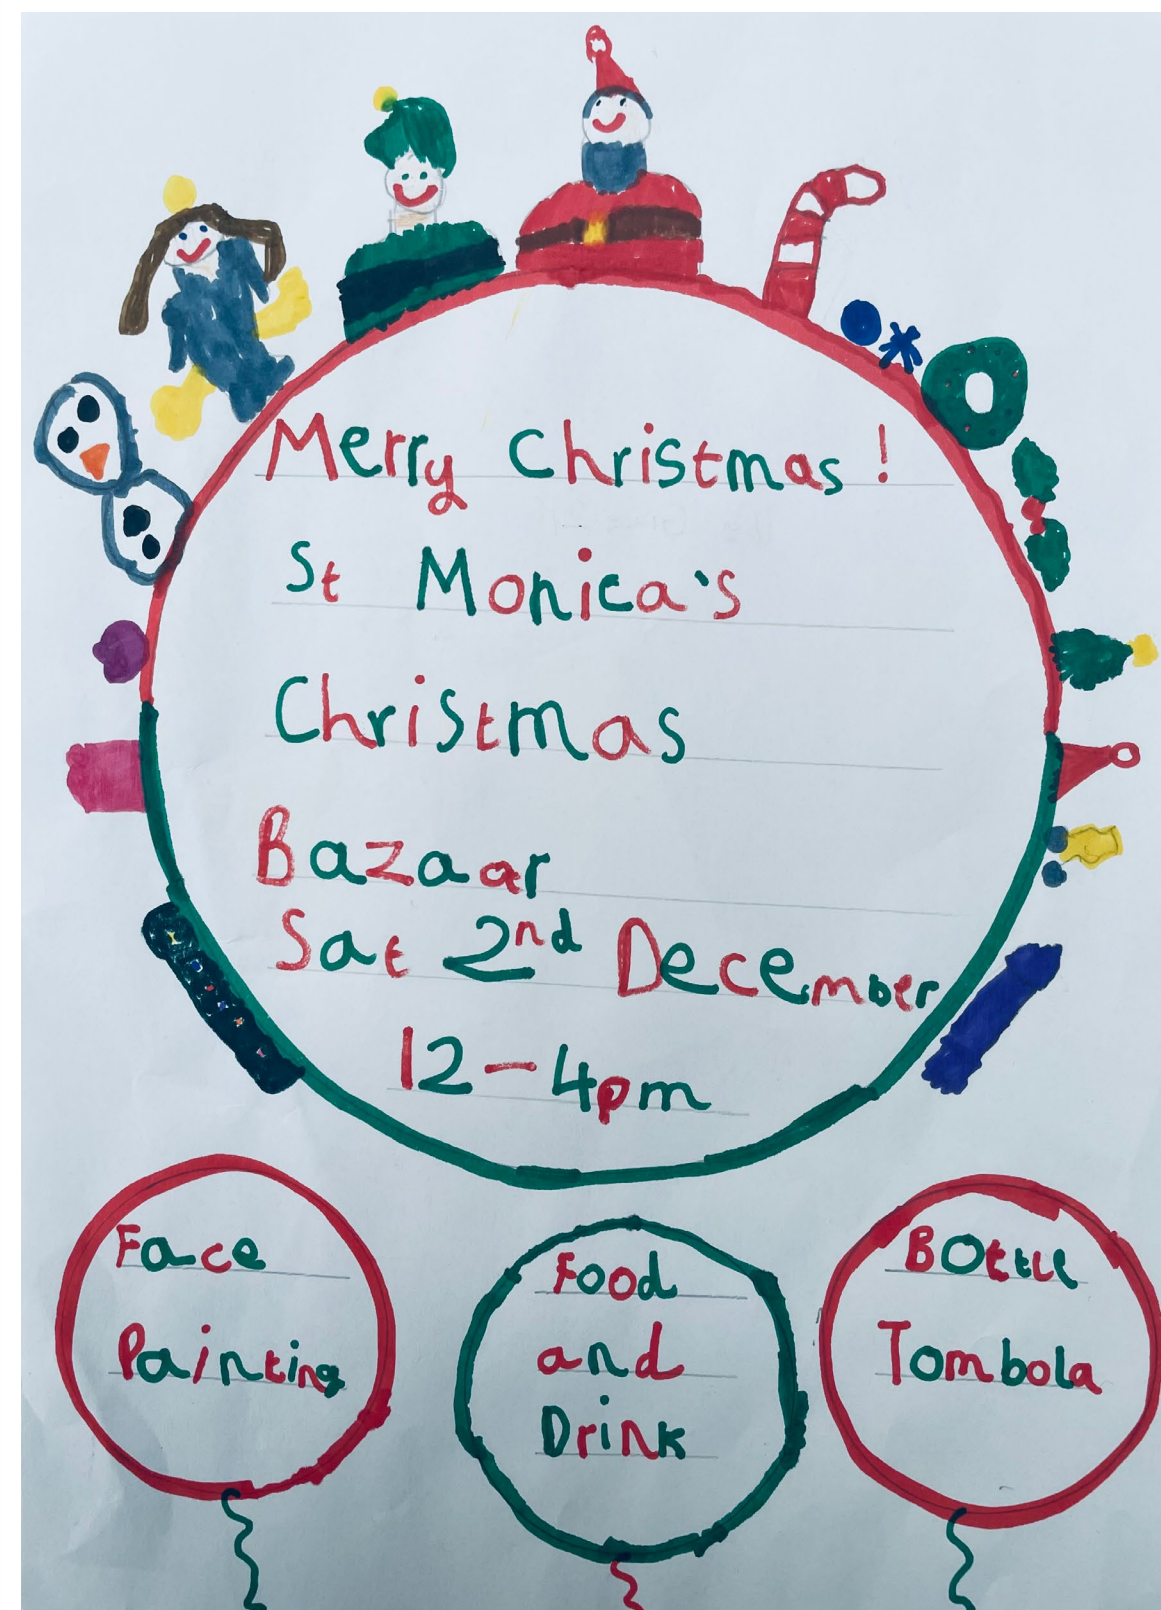 Merry Christmas!
St Monica's
Christmas
Bazaar
Sat 2nd December
12-4pm
Face
Painting
Food
and
Drink
Bottle
Tombola